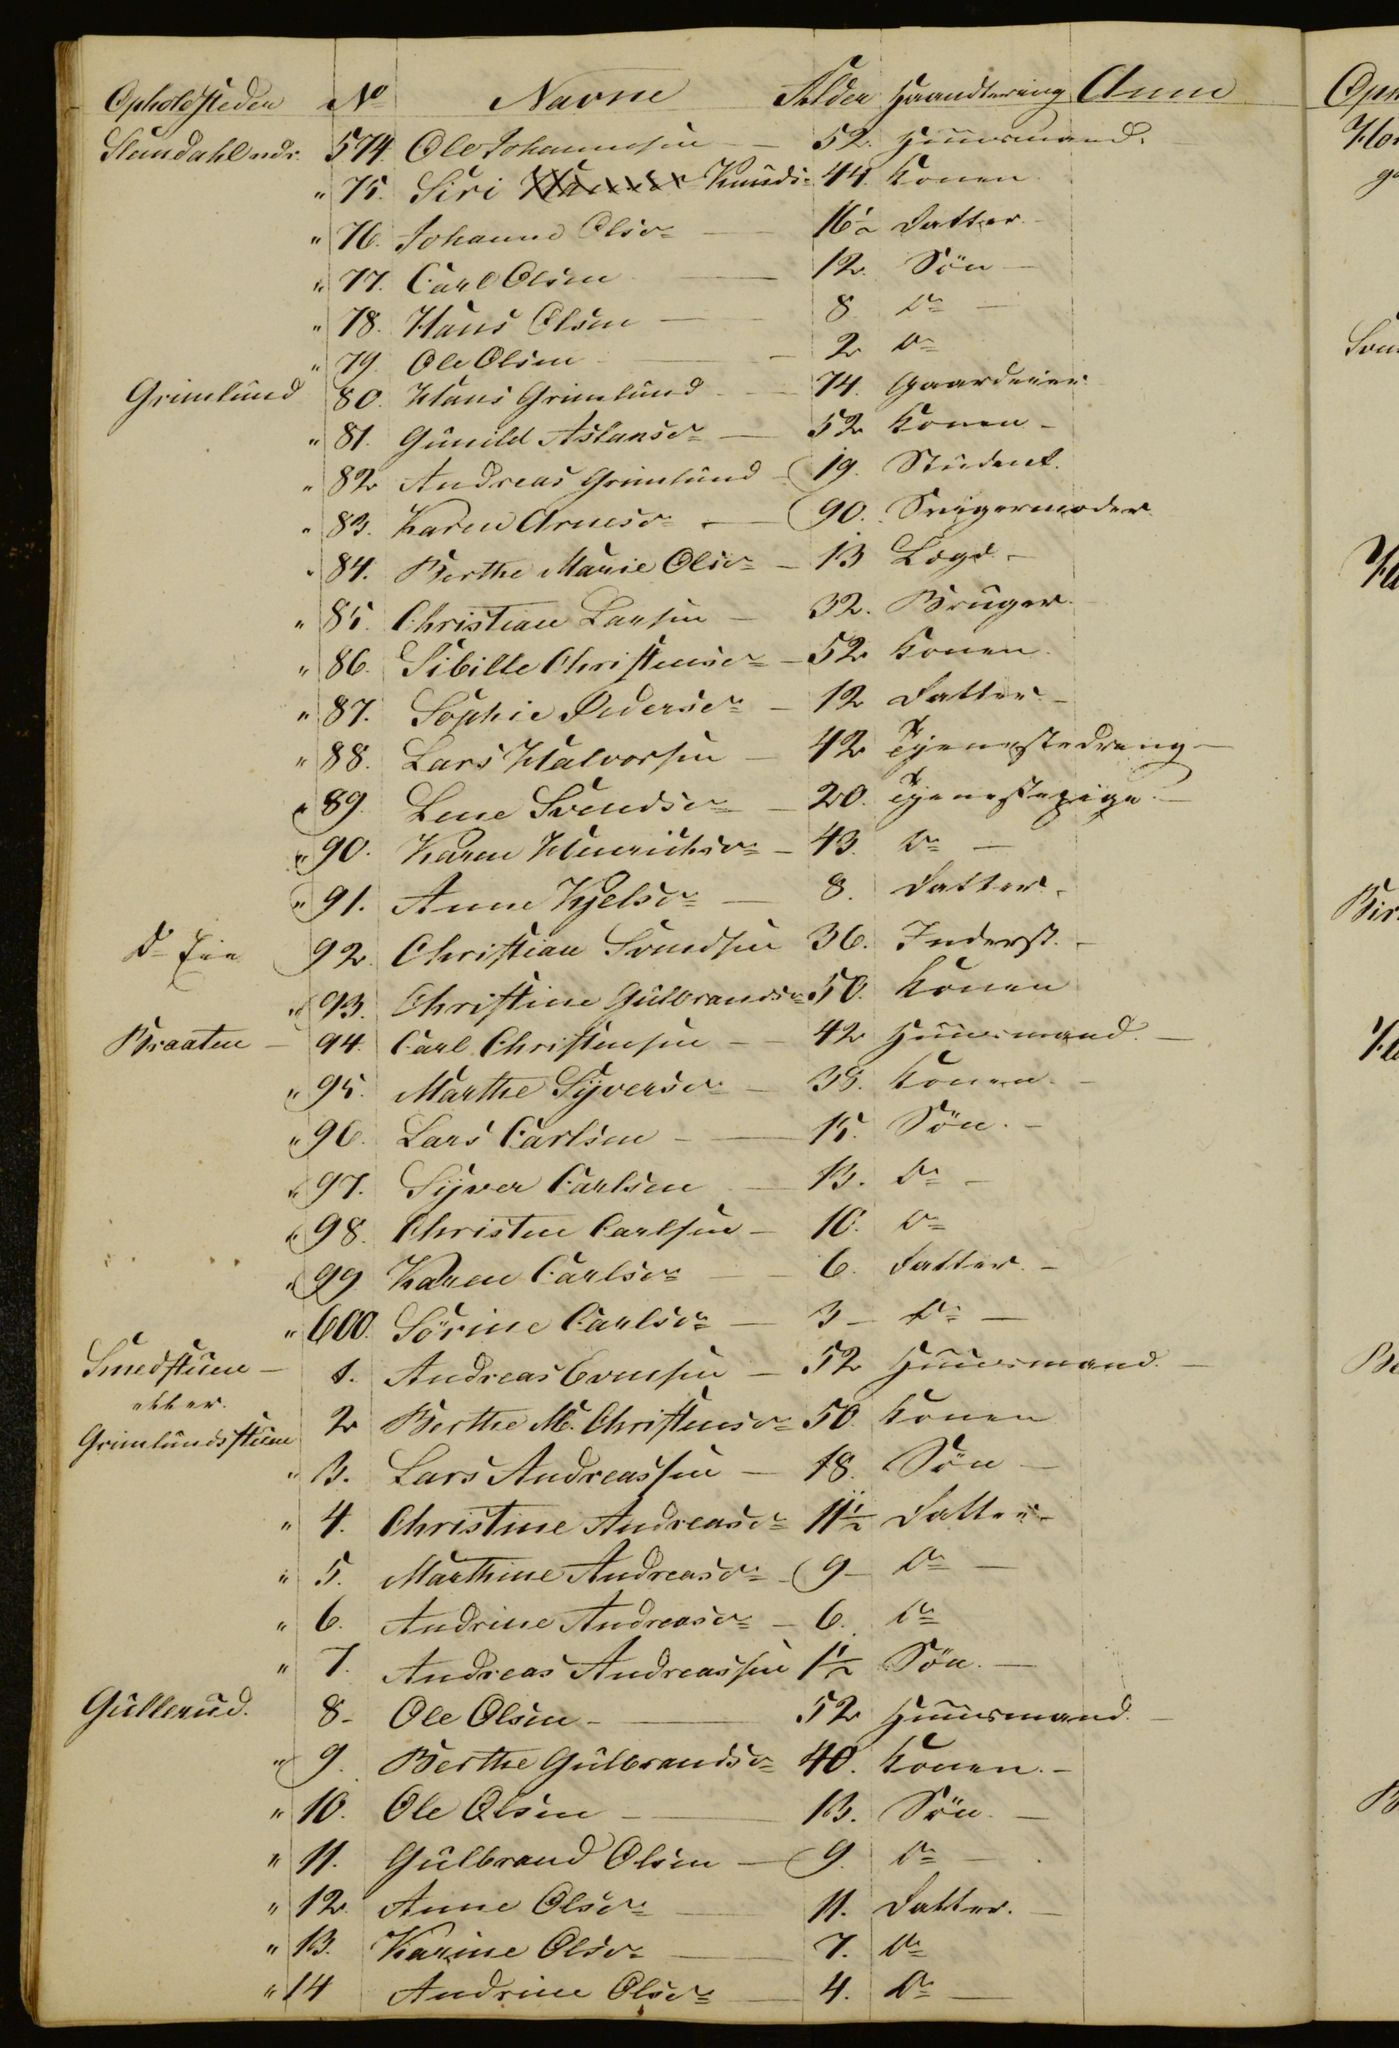 Opholdsteder No Navne Alder Haandtering Anm
574 Ole Johannesen — 52. Huusmand.
" 75. Siri Knuds= 44. Konen
" 76. Johanne Olsdr — 16½ Datter. —
" 77. Carl Olsen — 12. Søn —
" 78. Hans Olsen — 8. Do —
" 79. Ole Olsen — 2 Do
Grimlund 80. Hans Grimlund — 74. Gaardeier
" 81. Gunild Aslansdr — 52 Konen —
" 82 Andreas Grimlund — 19. Student.
" 83. Karen Arnesdr — 90. Svigermoder
" 84. Berthe Marie Olsdr — 13 Lægd —
" 85. Christian Larsen — 32. Bruger. —
" 86. Sibille Christensdr — 52 Konen.
" 87. Sophie Pedersdr — 12 Datter —
" 88. Lars Halvorsen — 42 Tjenestedreng —
" 89. Lene Svendsdr — 20. Tjenestepige. —
" 90. Karen Henrichsdr — 43. Do —
" 91. Anne Kjelsdr — 8. Datter.
Do Eie 92. Christian Svendsen 36. Inderst. —
" 93. Christine Gulbrandsdr 50. Konen
Braaten — 94. Carl Christensen — 42 Huusmand. —
" 95. Marthe Syversdr — 38. Konen. —
" 96. Lars Carlsen — 15. Søn. —
" 97. Syver Carlsen — 13. Do —
" 98. Christen Carlsen — 10. Do
" 99 Karen Carlsdr — 6. Datter. —
" 600. Sørine Carlsdr — 3 — Do —
Smedstuen — 1. Andreas Evensen — 52 Huusmand. —
eller
Grimlundsstuen 2 Berthe M. Christensdr 50 Konen
" 3. Lars Andreassen — 18. Søn —
" 4. Christine Andreasdr 11½ Datter —
" 5. Marthine Andreasdr — 9 — Do —
" 6. Andrine Andreasdr — 6. Do
" 7. Andreas Andreassen 1½ Søn. —
Gullerud. 8 — Ole Olsen — 52 Huusmand. —
" 9. Berthe Gulbrandsdr 40. Konen. —
" 10. Ole Olsen — 13. Søn. —
" 11. Gulbrand Olsen — 9. Do —
" 12. Anne Olsdr — 11. Datter. —
" 13. Karine Olsdr — 7. Do
" 14 Andrine Olsdr — 4. Do —